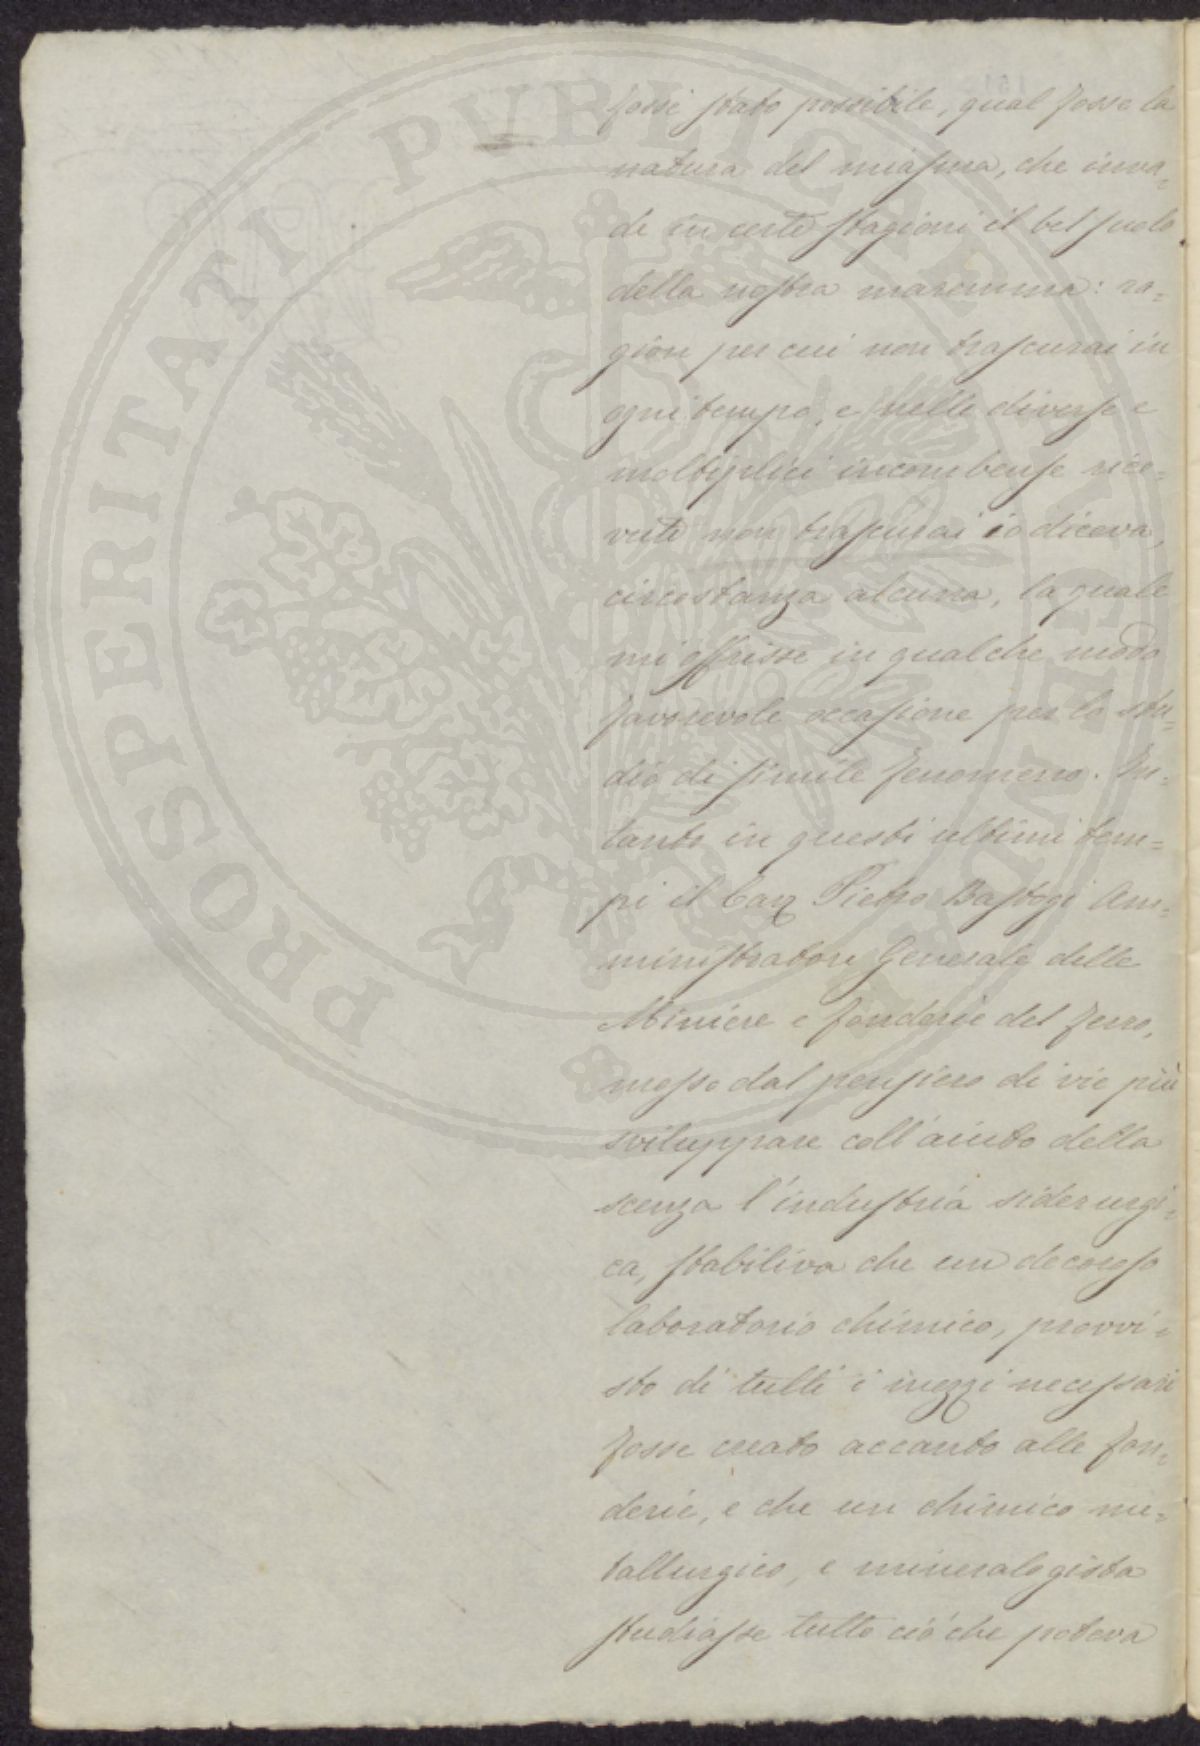 fossi stato possibile, qual fosse la
natura del miasma, che inva=
de in certe stagioni il bel suolo
della nostra maremma: ra=
gion per cui non trascurai in
ogni tempo, e nelle diverse e
moltiplici incombense rice=
vute non trascurai io diceva,
circostanza alcuna, la quale
mi offrisse in qualche modo
favorevole occasione per lo stu=
dio di simile fenomeno. In=
tanto in questi ultimi tem=
pi il Cav Pietro Bastogi Am=
ministratore Generale delle
Miniere e fonderie del ferro,
mosso dal pensiero di vie più
sviluppare coll'aiuto della
scenza l'industria siderurgi=
ca, stabiliva che un decoroso
laboratorio chimico, provvi=
sto di tutti i mezzi necessari
fosse creato accanto alle fon=
derie, e che un chimico me=
tallurgico, e mineralogista
studiasse tutto ciò che poteva
PROSPERITATI PVBLICAE